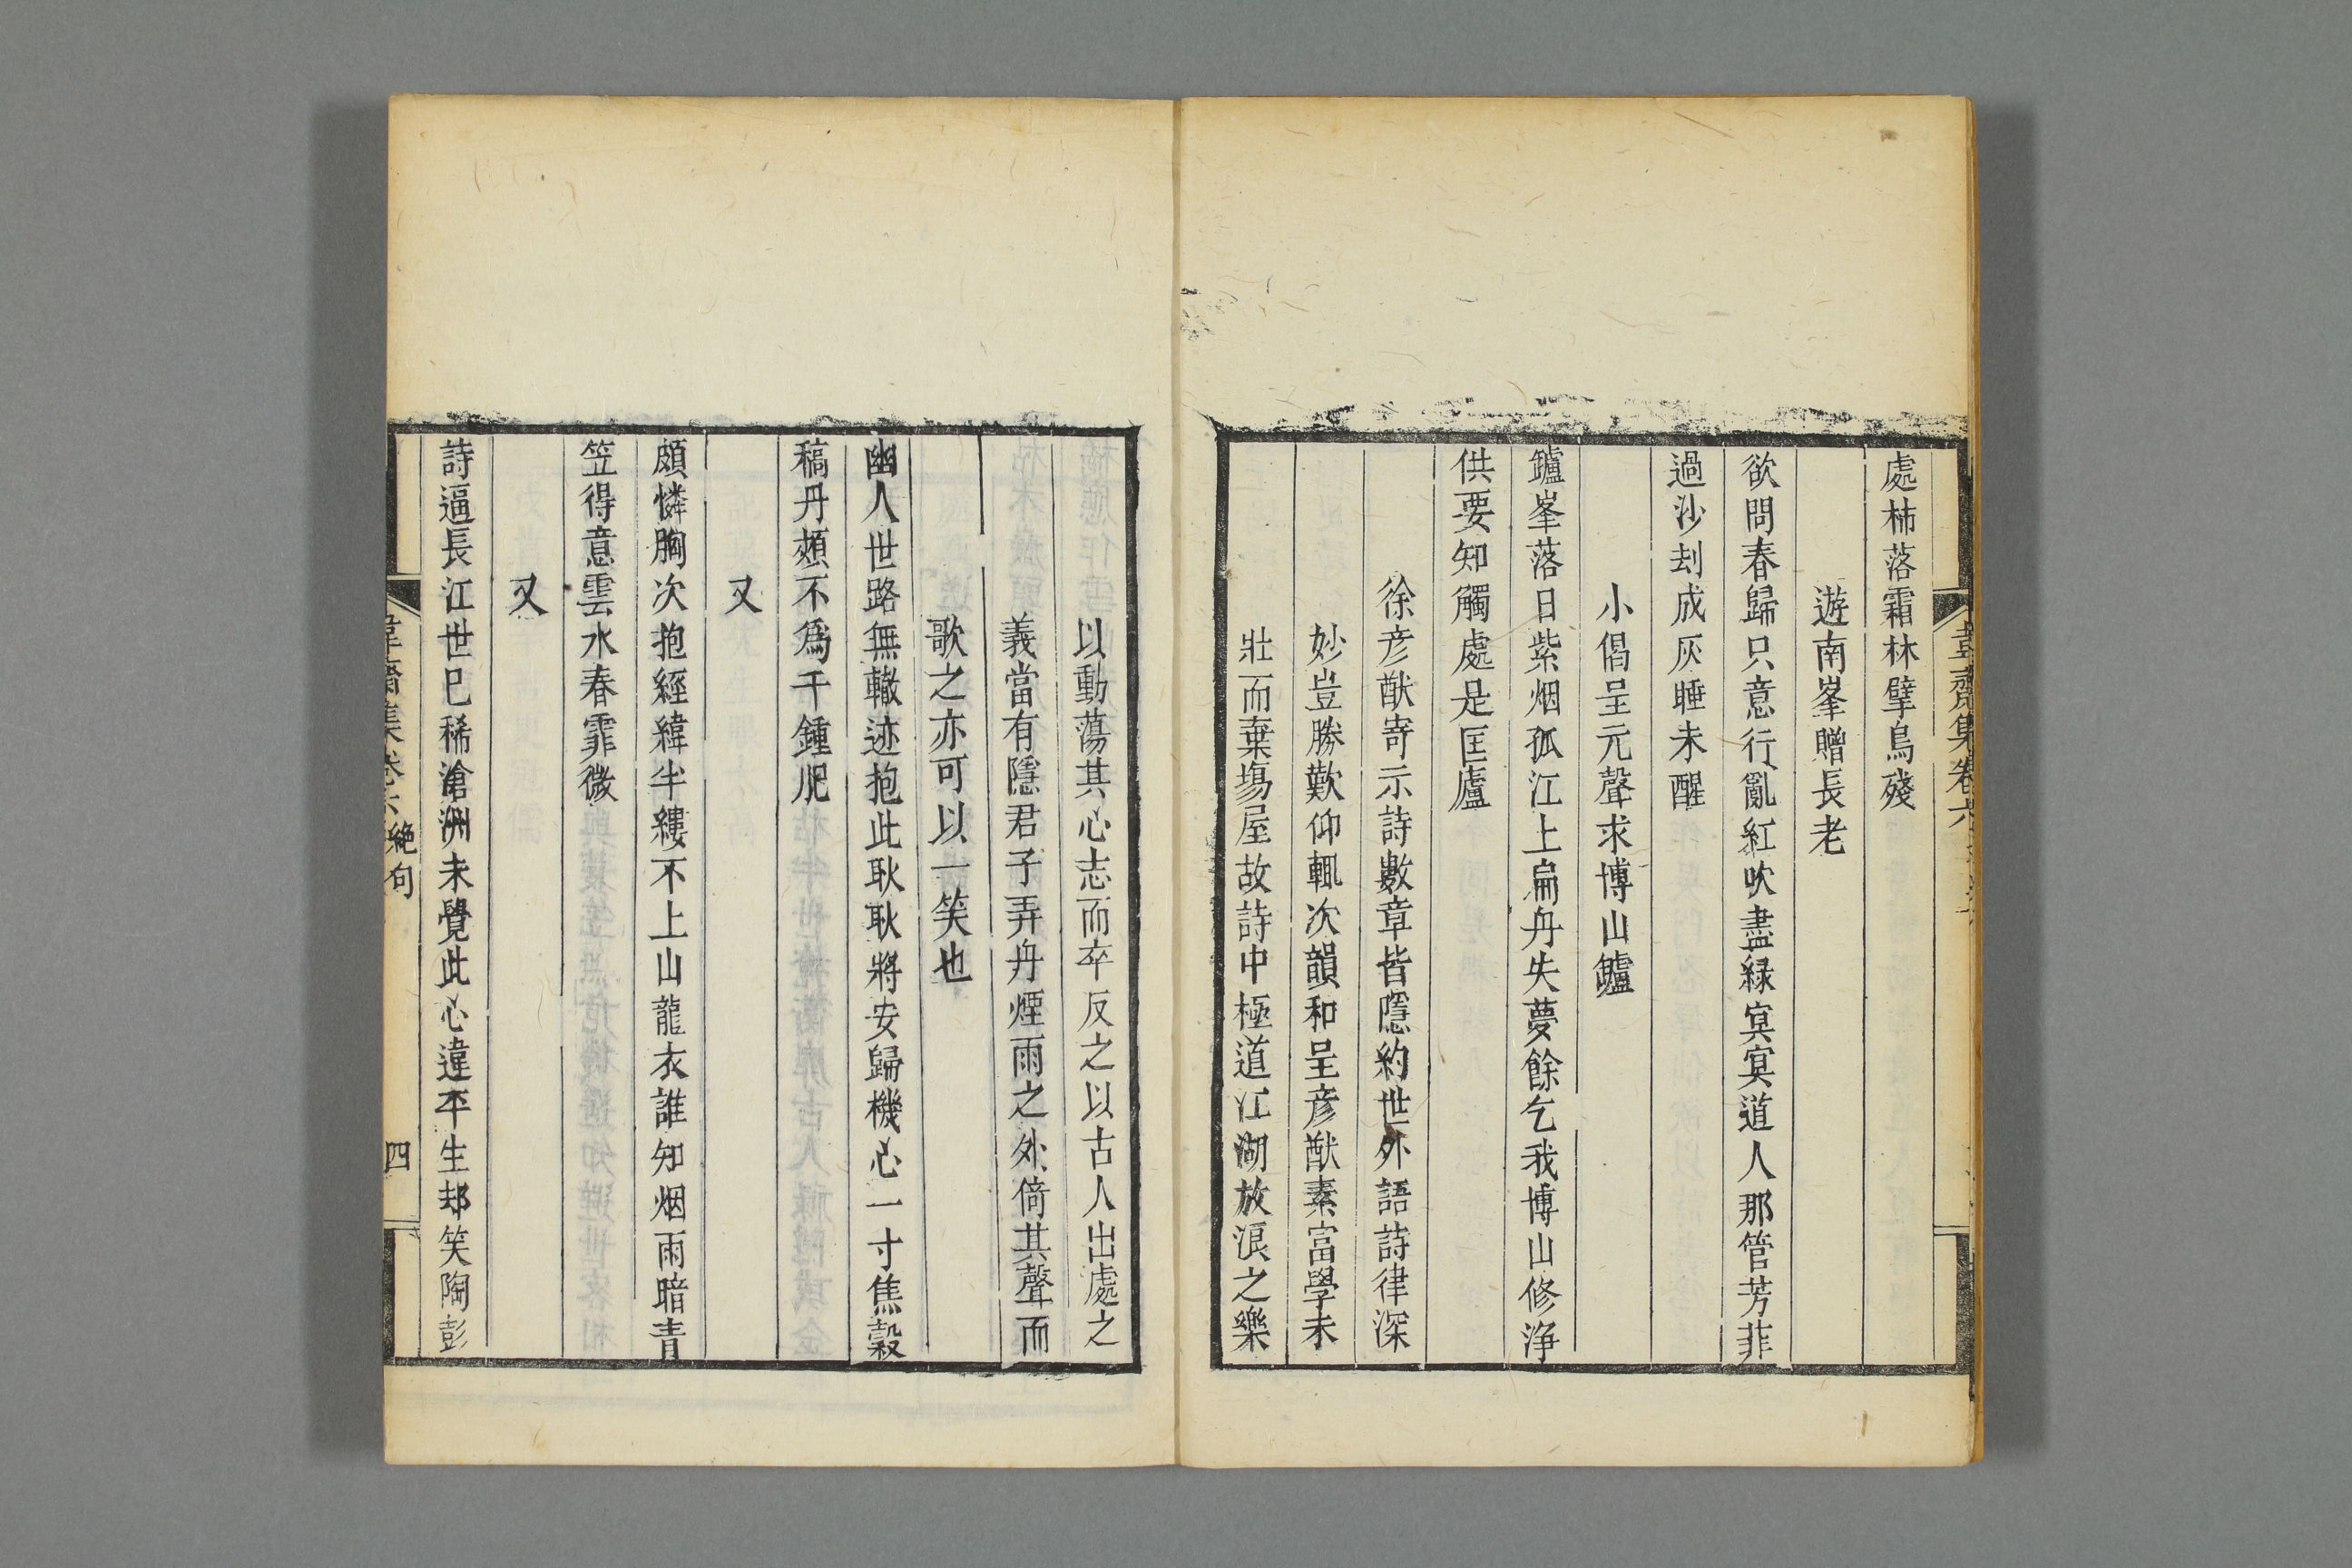 處柿落霜林擘鳥殘
遊南峯贈長老
欲問春歸只意行亂紅吹盡緑㝠㝠道人那管芳菲
過沙刦成灰睡未醒
小倡呈元聲求博山鑪
鑪峯落日紫烟孤江上扁舟失夢餘乞我博山修淨
供要知觸處是匡廬
徐彦猷寄示詩數章皆隱約世外語詩律深
妙豈勝歎仰輒次韻和呈彦猷素富學未
壯而棄塲屋故詩中極道江湖放浪之樂
以動蕩其心志而卒反之以古人出處之
義當有隱君子弄舟煙雨之外倚其聲而
歌之亦可以一笑也
幽人世路無轍迹抱此耿耿將安歸機心一寸焦穀
稿丹頰不爲千鍾肥
又
頗憐胸次抱經緯半縷不上山龍衣誰知烟雨暗青
笠得意雲水春霏微
又
詩逼長江世已稀滄洲未覺此心違平生却笑陶彭
韋齋集卷六 絶句
四